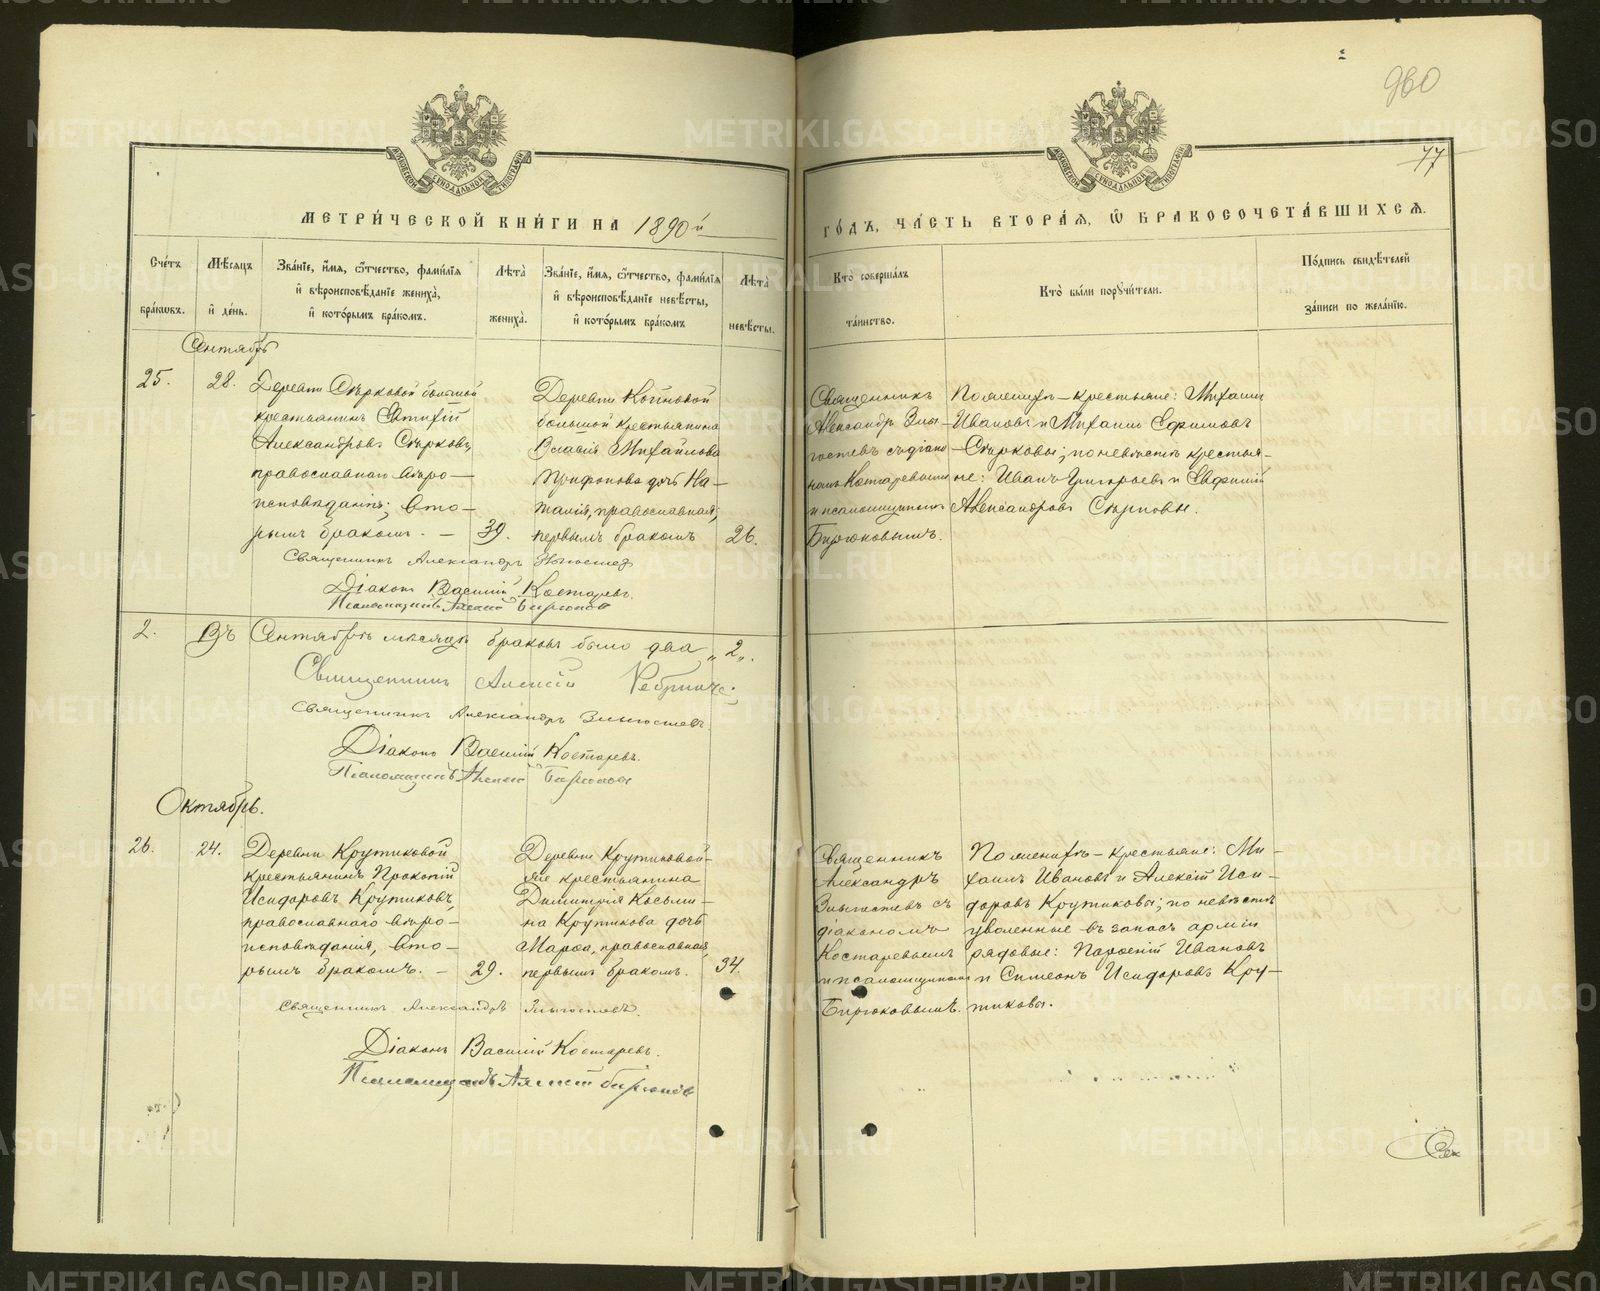 960
77
МОСКОВСКОЙ СѴНОДАЛЬНОЙ ТИПОГРАФІИ
МОСКОВСКОЙ СѴНОДАЛЬНОЙ ТИПОГРАФІИ
МЕТРИ́ЧЕСКОЙ КНИ́ГИ НА 1890й
ГО́ДЪ, ЧА́СТЬ ВТОРА́Я, Ѡ БРАКОСОЧЕТА́ВШИХСЯ.
Сче́тъ бра́кѡвъ.
Мѣ́сяцъ и҆ де́нь.
Зва́нїе, и҆́мя, ѻ҆́тчество, фами́лїя и҆ вѣроисповѣ́данїе жениха̀, и҆ кото́рымъ бра́комъ.
Лѣ́та жениха̀.
Зва́нїе, и҆́мя, ѻ҆́тчество, фами́лїя и҆ вѣроисповѣ́данїе невѣ́сты, и҆ кото́рымъ бра́комъ
Лѣ́та невѣ́сты.
Кто̀ соверша́лъ та́инство.
Кто̀ бы́ли порꙋчи́тели.
По́дпись свидѣ́телей за́писи по жела́нїю.
Сентябрь
25.
28.
Деревни Сѣрковой большой
крестьянинъ Евтихій
Александровъ Сѣрковъ,
православнаго вѣро-
исповѣданія; вто-
рымъ бракомъ. —
39.
Деревни Койновой
большой крестьянина
Власія Михайлова
Трифонова дочь На-
талія, православная;
первымъ бракомъ
26.
Священникъ
Александръ Злы-
гостевъ съ діако-
номъ Костаревымъ
и псаломщикомъ
Бирюковымъ.
По женихѣ – крестьяне: Михаилъ
Ивановъ и Михаилъ Ефимовъ
Сѣрковы; по невѣстѣ крестья-
не: Иванъ Григорьевъ и Евфимій
Александровъ Сѣрковы.
Священникъ Александръ Злыгостевъ
Діаконъ Василій Костаревъ.
Псаломщикъ Алексій Бирюковъ
2.
Въ Сентябрѣ мѣсяцѣ браковъ было два „2„.
Священникъ Алексій
Священникъ Александръ Злыгостевъ.
Діаконъ Василій Костаревъ.
Псаломщикъ Алексій Бирюковъ
Октябрь.
26.
24.
Деревни Крутиковой
крестьянинъ Прокопій
Исидоровъ Крутиковъ
православнаго вѣро-
исповѣданія, вто-
рымъ бракомъ. —
29.
Деревни Крутиковой-
же крестьянина
Димитрія Косьми-
на Крутикова дочь
Марѳа, православная,
первымъ бракомъ.
34.
Священникъ
Александръ
Злыгостевъ съ
діакономъ
Костаревымъ
и псаломщикомъ
Бирюковымъ.
По женихѣ – крестьяне: Ми-
хаилъ Ивановъ и Алексій Иси-
доровъ Крутиковы; по невѣстѣ
уволенные въ запасъ арміи
рядовые: Парѳеній Ивановъ
и Симеонъ Исидоровъ Кру-
тиковы.
Священникъ Александръ Злыгостевъ.
Діаконъ Василій Костаревъ.
Псаломщикъ Алексій Бирюковъ
METRIKI.GASO-URAL.RU